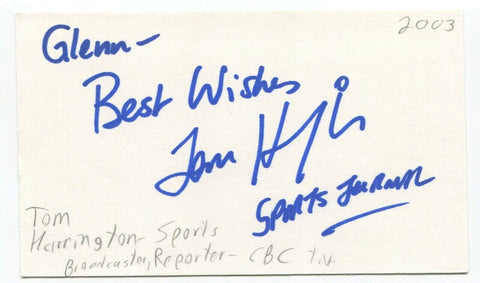 2003
Glenn—
Best Wishes
Tom
SPORTS JOURNAL
Tom
Harrington- Sports
Broadcaster, Reporter- CBC T.V.